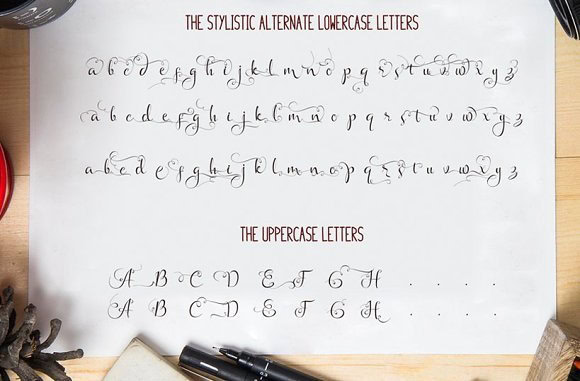 THE STYLISTIC ALTERNATE LOWERCASE LETTERS
a b c d e f g h i j k l m n o p q r s t u v w x y z
a b c d e f g h i j k l m n o p q r s t u v w x y z
a b c d e f g h i j k l m n o p q r s t u v w x y z
THE UPPERCASE LETTERS
A B C D E F G H . . . .
A B C D E F G H . . . .